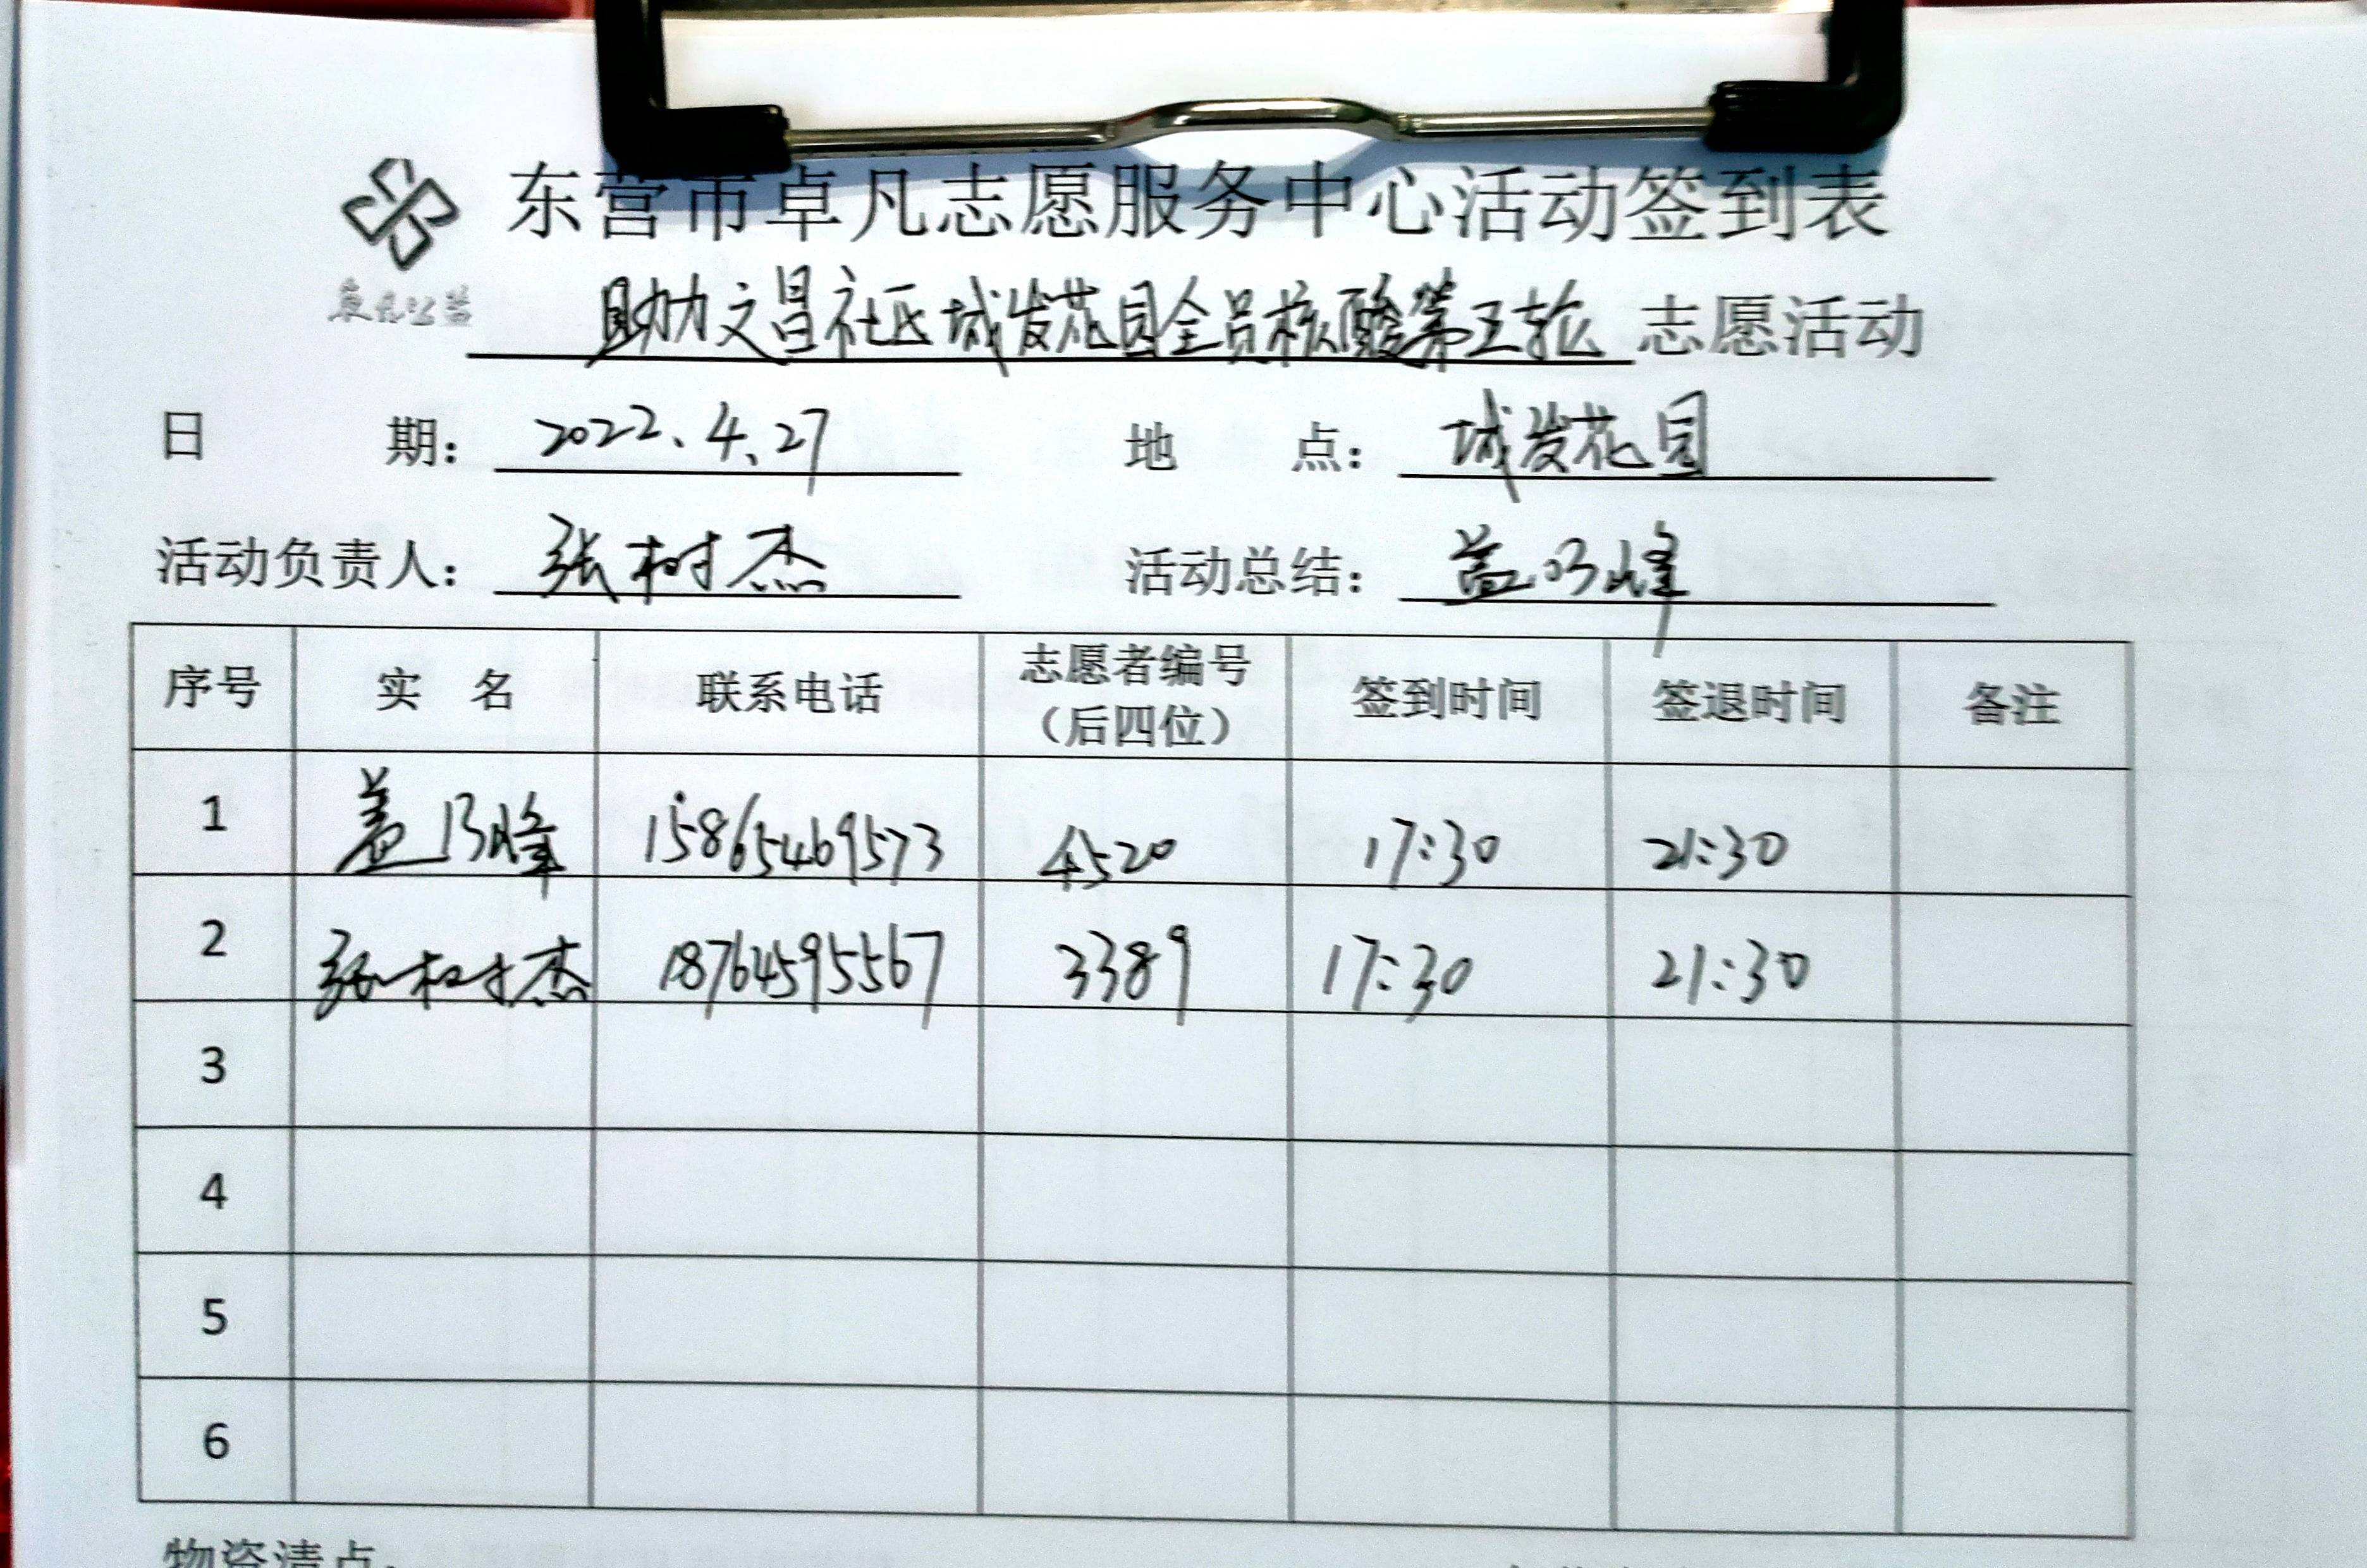 东营市卓凡志愿服务中心活动签到表
卓凡公益
助力文昌社区城发花园全员核酸第五轮 志愿活动
日 期: 2022.4.27 地 点: 城发花园
活动负责人: 张树杰 活动总结: 盖乃峰
序号 实 名 联系电话 志愿者编号（后四位） 签到时间 签退时间 备注
1 盖乃峰 15865469573 4520 17:30 21:30
2 张树杰 18764595567 3389 17:30 21:30
3
4
5
6
物资清点: